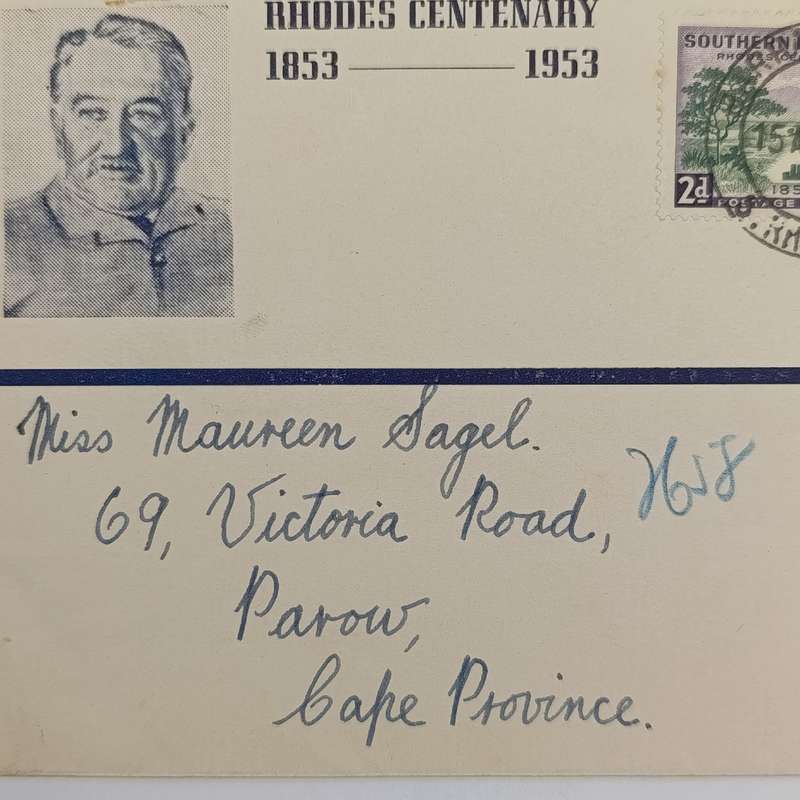 RHODES CENTENARY
1853 — 1953
SOUTHERN
2d POSTAGE
Miss Maureen Sagel.
69, Victoria Road,
Parow,
Cape Province.